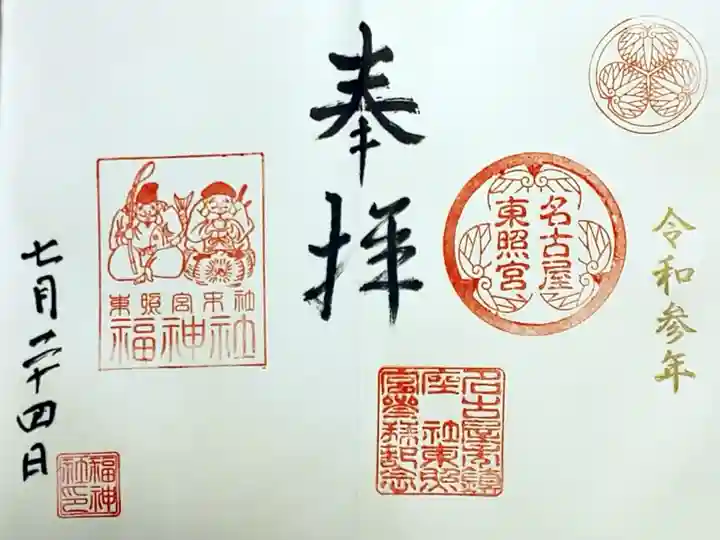 令和参年
名古屋
東照宮
奉拝
名古屋市鎮
座 社東照
宮参拝記念
東照宮末社
福神社
七月二十四日
福神
社印